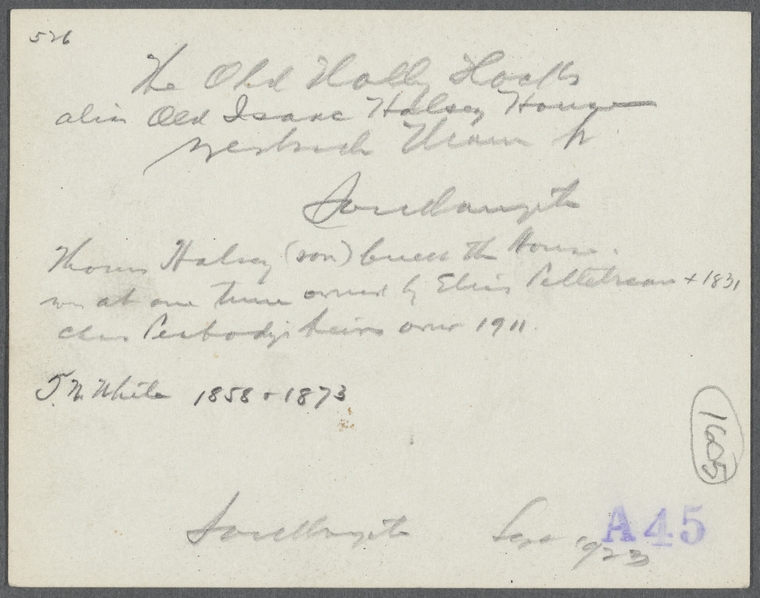 526
The Old Holly Hocks
alias Old Isaac Halsey House
Southampton
Thomas Halsey (son) built the House.
was at one time owned by Elias Pelletreau + 1831
Chas Peabody's heirs own 1911.
J. N. White 1858 + 1873
1605
Southampton Sept 1923
A45